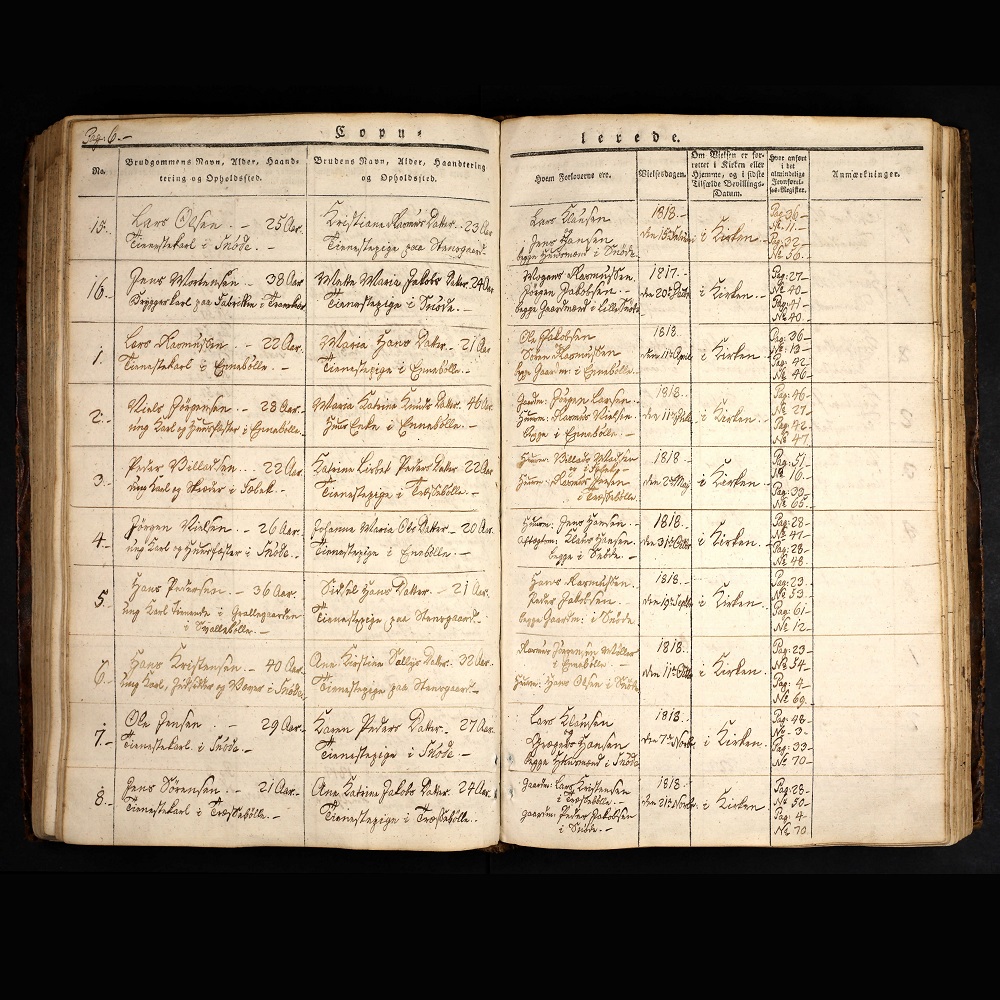 Pag: 6.-
Copu=
lerede.
No.
Brudgommens Navn, Alder, Haand=
tering og Opholdssted.
Brudens Navn, Alder, Haandtering
og Opholdssted.
Hvem Forloverne ere.
Vielsesdagen.
Om Vielsen er for-
rettet i Kirken eller
Hjemme, og i sidste
Tilfælde Bevillings-
Datum.
Hvor anført
i det
almindelige
Jevnførel-
ses-Register.
Anmærkninger.
15.
Lars Olsen . — 25 Aar.
Tienestekarl i Snöde. —
Kristiane Rasmus Datter. — 23 Aar.
Tienestepige paa Steensgaard.
Lars Klausen
Jens Hansen
begge Huusmænd i Snöde
1818. —
i Kirken. —
Pag: 36 —
№ 11. —
Pag: 32 —
№ 56. —
16.
Jens Mortensen . — 38 Aar
Mette Maria Jakobs Datter. 24 Aar
Tienestepige i Snöde. —
Mogens Rasmussen
Jörgen Jakobsen. —
begge Gaardmænd i Lille Snöde
1817. —
i Kirken. —
Pag: 27 —
№ 40 —
Pag: 41 —
№ 40. —
1.
Lars Rasmussen . — 22 Aar.
Tienestekarl i Ennebölle. —
Maria Hans Datter. — 21 Aar
Tienestepige i Ennebölle. —
Ole Jakobsen
Sören Rasmussen
begge Gaardm: i Ennebölle. —
1818. —
den 11te April
i Kirken. —
Pag: 36 —
№: 13 —
Pag: 42 —
№ 46 —
2.
Niels Jörgensen . — 28 Aar. —
ung Karl og Huusfæster i Ennebölle. —
Maria Katrine Knuds Datter. 46 Aar
Huus Enke i Ennebölle. —
Gaardm: Jörgen Larsen. —
Huusm: Rasmus Nielsen
begge i Ennebölle. —
1818. —
i Kirken. —
Pag: 46 —
№ 27 —
Pag: 42 —
№ 47 —
3.
Peder Billadsen . — 22 Aar.
ung Karl og Skræder i Söbek. —
Katrine Lisbet Peders Datter 22 Aar
Tienestepige i Træsebölle. —
Huusm: Billads Madsen
Træsebölle
1818 —
den 2den Maj
i Kirken. —
Pag: 51 —
№ 16 —
Pag: 39 —
№ 65. —
4.
Jörgen Nielsen — 26 Aar.
ung Karl og Huusfæster i Snöde. —
Johanne Maria Ols Datter — 20 Aar.
Tienestepige i Ennebölle —
Huusm: Jens Hansen
Aftægtsm: Klaus Hansen
begge i Snöde —
1818. —
i Kirken. —
Pag: 28 —
№ 47 —
Pag: 28 —
№ 48 —
5.
Hans Pedersen — 36 Aar
ung Karl tienende i Grallegaarden
i Svallebölle. —
Sidsel Hans Datter. — 21 Aar.
Tienestepige paa Steensgaard —
Hans Rasmussen
Peder Jakobsen
begge Gaardm: i Snöde
1818. —
den 19 Septbr
i Kirken. —
Pag: 23 —
№ 53 —
Pag: 61 —
№ 12 —
6.
Hans Kristensen . — 40 Aar
Ane Kirstine Datter. 32 Aar
Tienestepige paa Steensgaard —
Rasmus Jörgensen Möller
i Ennebölle —
Huusm: Hans Olsen i Snöde
1818. —
i Kirken. —
Pag: 23 —
№ 54 —
Pag: 4 —
№ 69. —
7.
Ole Jensen . — 29 Aar —
Tienestekarl i Snöde. —
Karen Peders Datter. — 27 Aar.
Tienestepige i Snöde. —
Lars Klausen
og
Hansen
begge Huusmænd i Snöde
1818. —
den 7de Novbr
i Kirken. —
Pag: 48 —
№ 9 —
Pag: 33 —
№ 70 —
8.
Jens Sörensen . — 21 Aar —
Tienestekarl i Træsebölle. —
Ane Katrine Jakobs Datter. 24 Aar.
Tienestepige i Træsebölle. .
Gaardm: Lars Kristensen
i Træsebölle. —
Gaardm: Peder Jakobsen
i Snöde. —
1818. —
den 21de Novbr
i Kirken. .
Pag: 28 —
№ 50 —
Pag: 4 —
№ 70